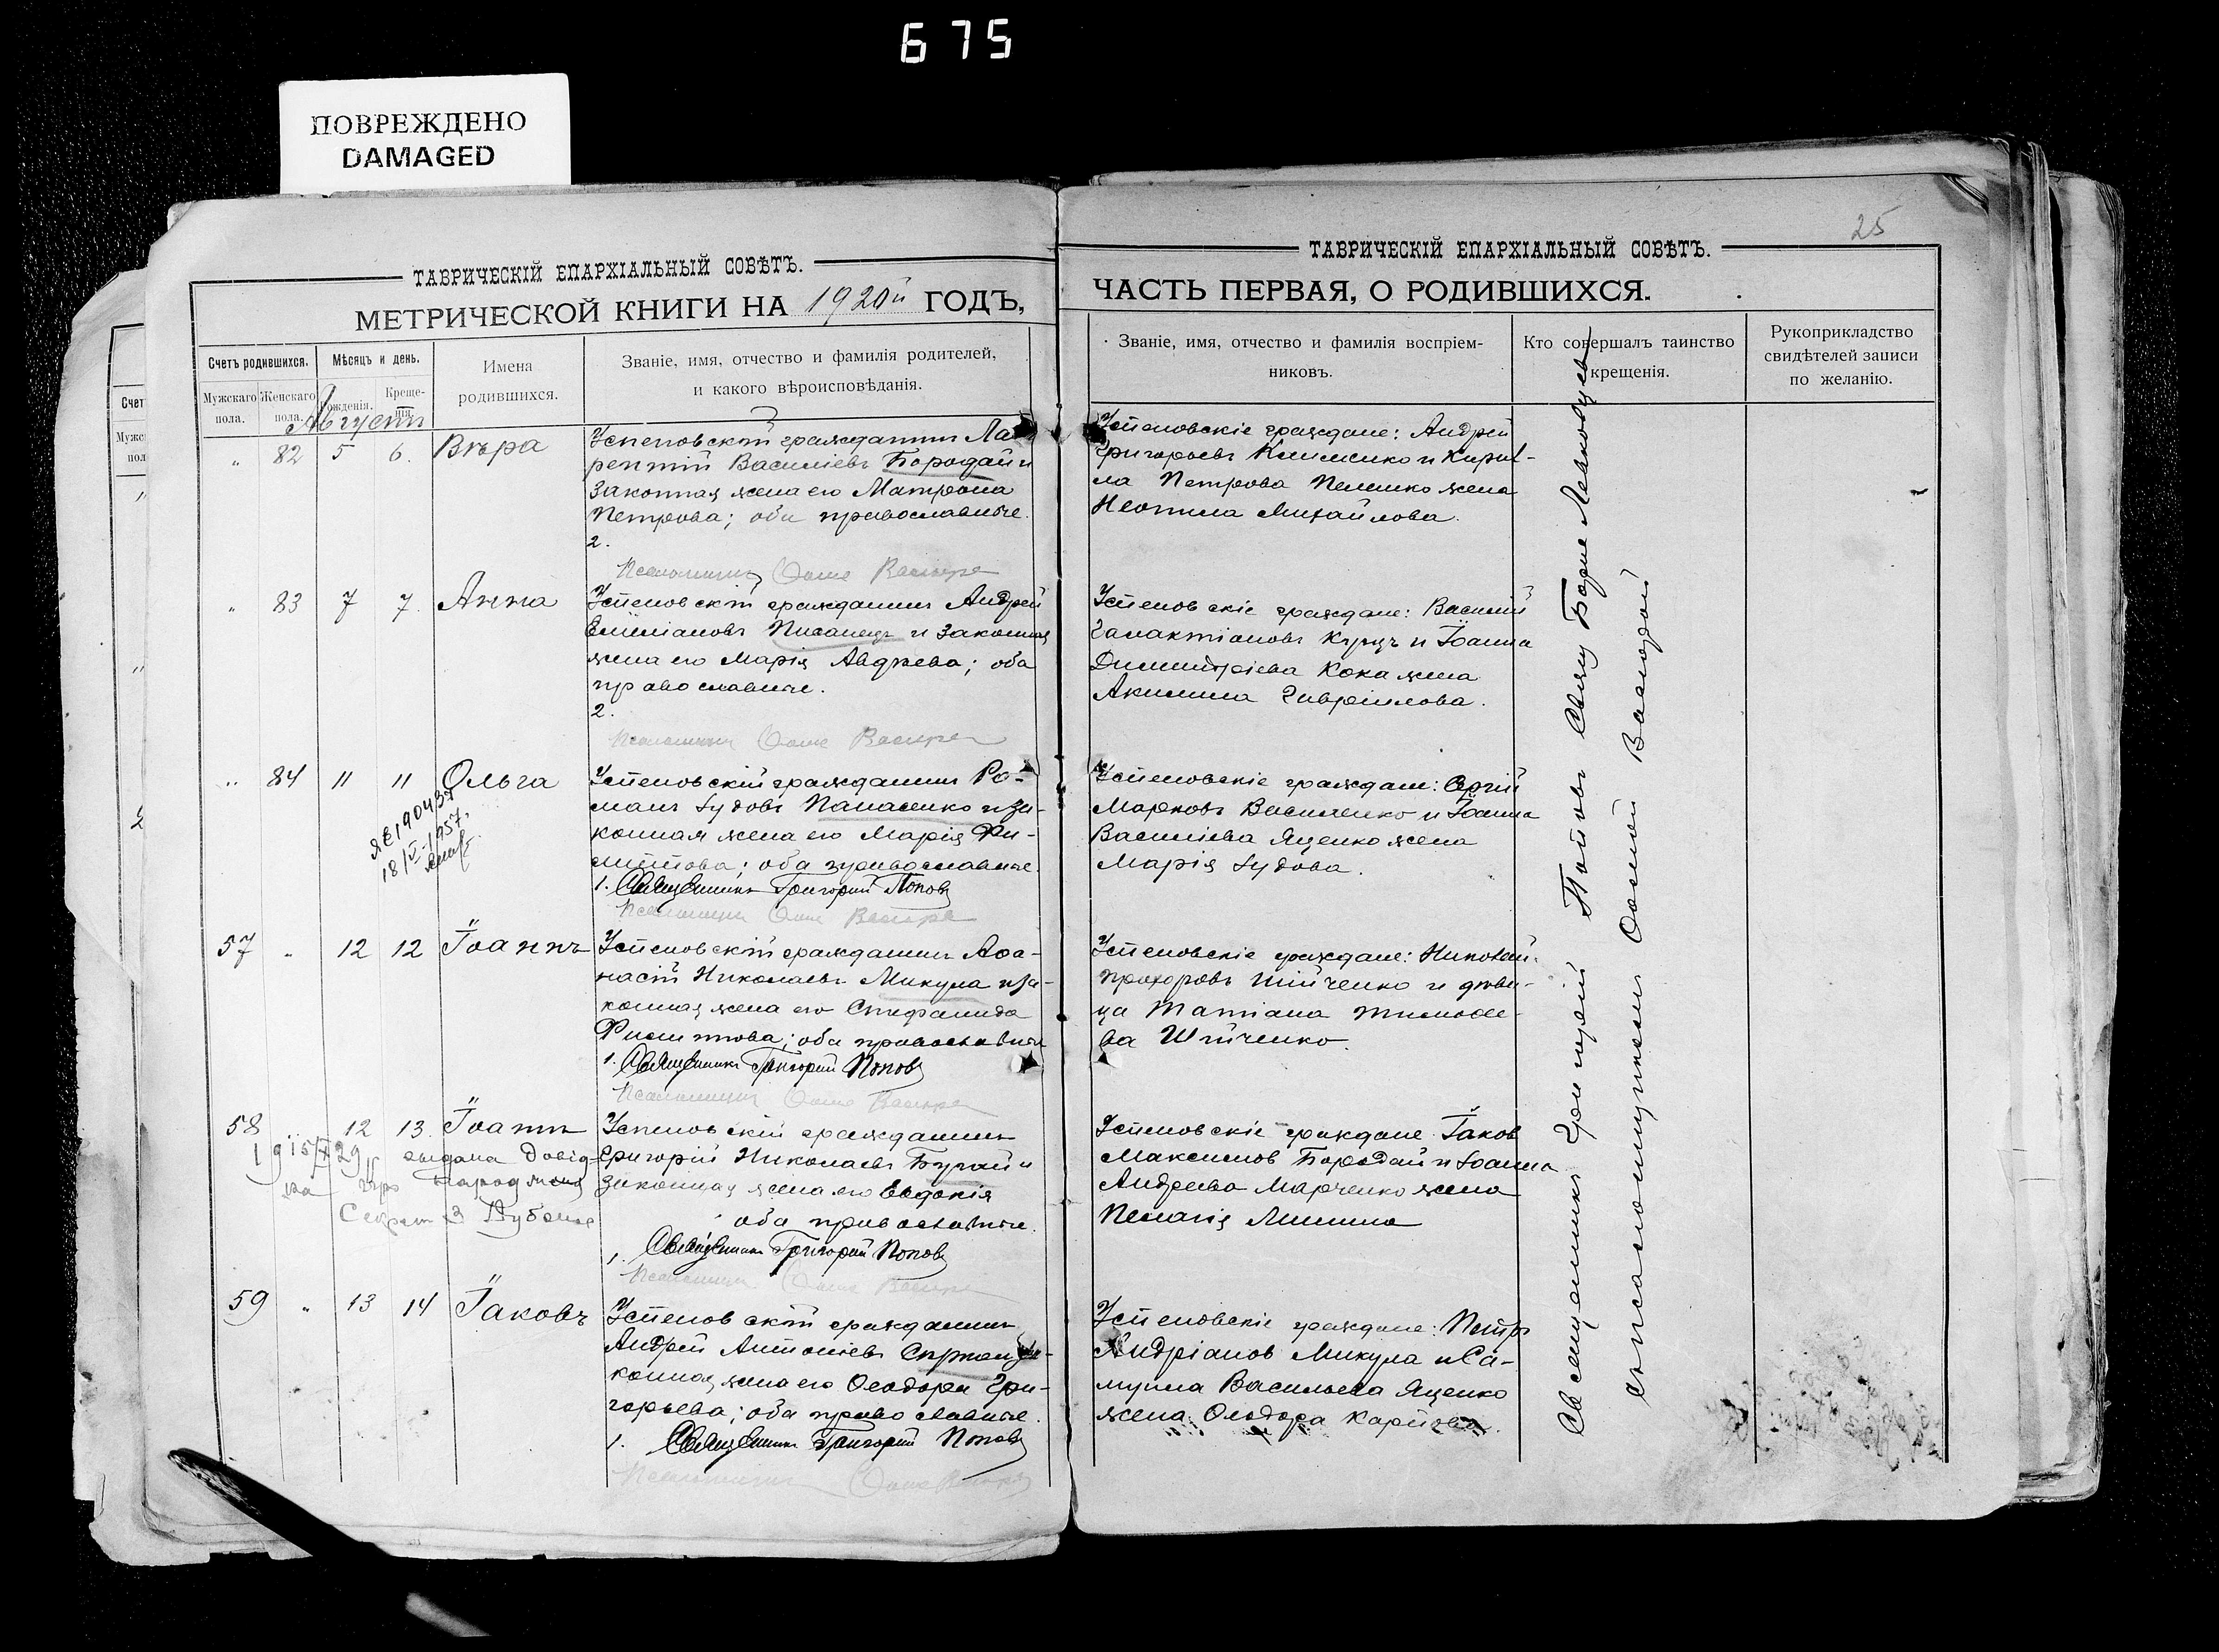 675
ПОВРЕЖДЕНО
DAMAGED
25
ТАВРИЧЕСКІЙ ЕПАРХІАЛЬНЫЙ СОВѢТЪ.
МЕТРИЧЕСКОЙ КНИГИ НА 1920й ГОДЪ,
Счетъ родившихся.
Мужскаго пола.
Женскаго пола.
Мѣсяцъ и день.
Рожденія.
Креще-
нія.
Имена
родившихся.
Званіе, имя, отчество и фамилія родителей,
и какого вѣроисповѣданія.
Августъ
„ 82 5 6. Вѣра
Успеновскій гражданинъ Лав
рентій Василіевъ Бородай и
законная жена его Матрона
Петрова; оба православные.
2.
Псаломщикъ
„ 83 7 7. Анна
Успеновскій гражданинъ Андрей
Емиліановъ Писанецъ и законная
жена его Марія Авдѣева; оба
православные.
2.
Псаломщикъ
„ 84 11 11 Ольга
ЯЕ190437
18/V-1957.
Успеновскій гражданинъ Ро-
манъ Іудовъ Панасенко и за-
конная жена его Марія Фи-
липпова; оба православные.
1. Священникъ Григорій Поповъ
Псаломщикъ
57 „ 12 12 Іоаннъ
Успеновскій гражданинъ Аѳа-
насій Николаевъ Микула и за-
конная жена его Стефанида
Филиппова; оба православные
1. Священникъ Григорій Поповъ
Псаломщикъ
58 12 13. Іоаннъ
Успеновскій гражданинъ
Григорій Николаевъ Бугай и
законная жена его Евдокія
оба православные.
1. Священникъ Григорій Поповъ
Псаломщикъ
59 „ 13 14 Іаковъ
Успеновскій гражданинъ
Андрей Антоніевъ за-
конная жена его Ѳеодора Гри-
горьева; оба православные.
1. Священникъ Григорій Поповъ
Псаломщикъ
ТАВРИЧЕСКІЙ ЕПАРХІАЛЬНЫЙ СОВѢТЪ.
ЧАСТЬ ПЕРВАЯ, О РОДИВШИХСЯ.
Званіе, имя, отчество и фамилія воспріем-
никовъ.
Кто совершалъ таинство
крещенія.
Рукоприкладство
свидѣтелей записи
по желанію.
Успеновскіе граждане: Андрей
Григорьевъ Клименко и Кирил-
ла Петрова Пелешко жена
Неонила Михайлова.
Успеновскіе граждане: Василій
Галактіоновъ Куцъ и Іоанна
Димитріева Кока жена
Акилина Гавріилова.
Успеновскіе граждане: Сергій
Марковъ Василенко и Іоанна
Василіева Яценко жена
Марія Іудова.
Успеновскіе граждане: Николай
Прохоровъ Шійченко и дѣви-
ца Татіана Тимоѳе-
ва Шійченко.
Успеновскіе граждане Іаков
Максимов Бородай и Іоанна
Андреева Марченко жена
Пелагія Минина
Успеновскіе граждане: Петръ
Андріанов Микула и Са-
муила Васильева Яценко
жена Ѳеодора Карпова.
Священникъ Григорій Поповъ
съ псаломщикомъ